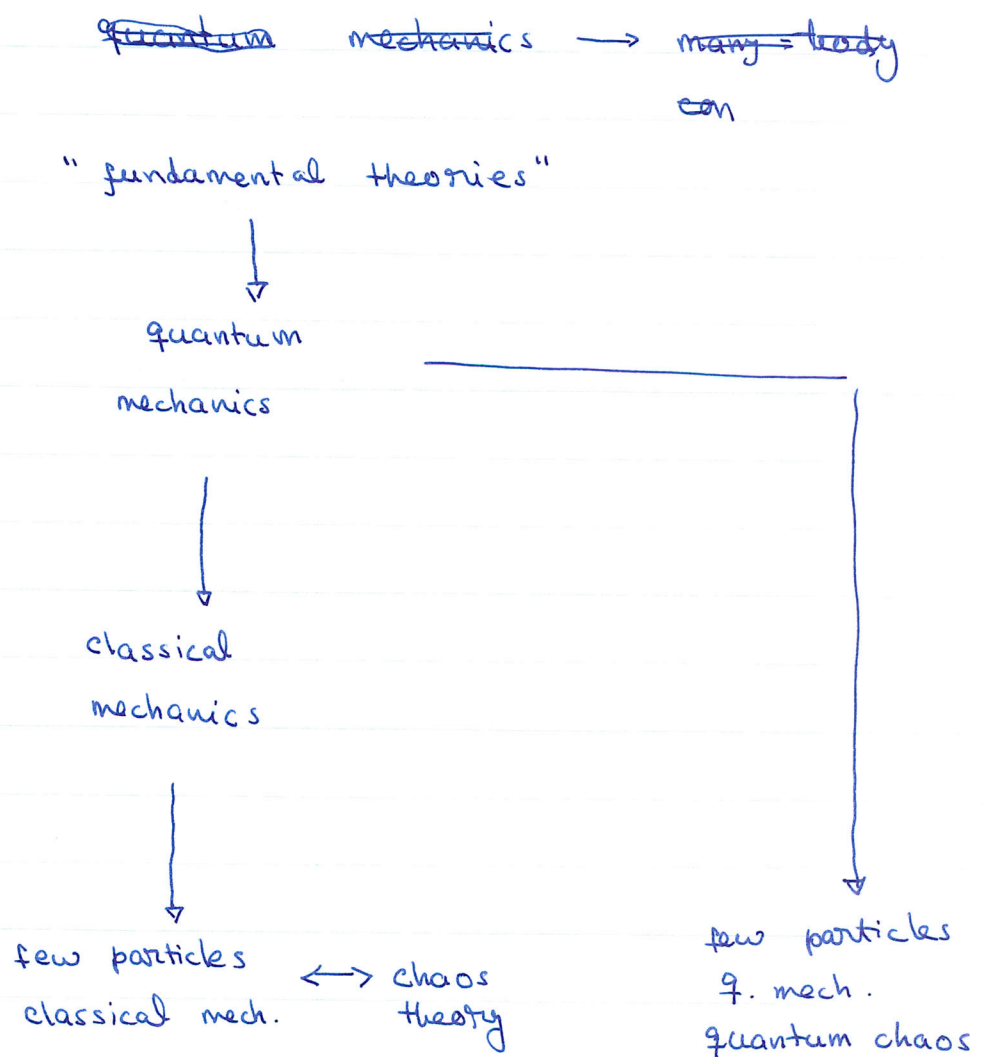 quantum mechanics → many-body
con
"fundamental theories"
quantum
mechanics
classical
mechanics
few particles
classical mech.
↔ chaos
theory
few particles
q. mech.
quantum chaos